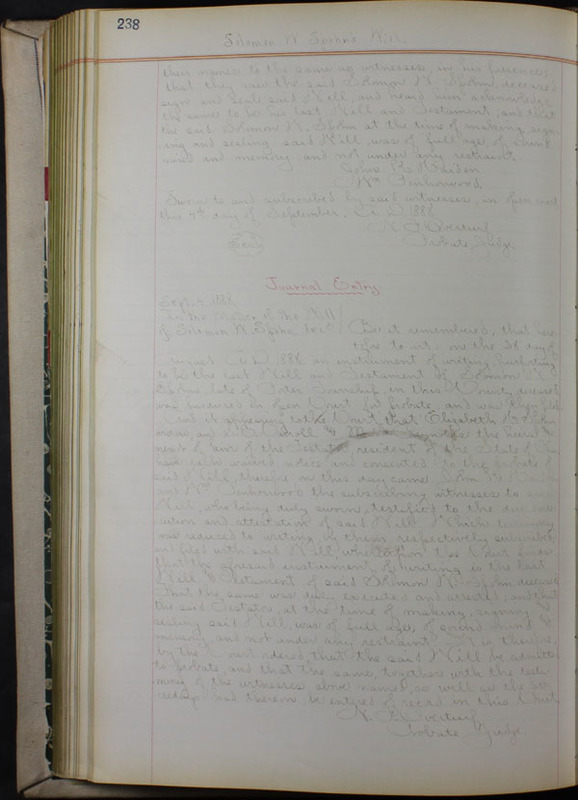 238
Solomon W. Spohn's Will.
their names to the same as witnesses in his presence;
that they saw the said Solomon W. Spohn, deceased
sign and seal said Will, and heard him acknowledge
the same to be his last Will and Testament, and that
the said Solomon W. Spohn at the time of making, sign-
ing and sealing said Will was of full age, of sound
mind and memory and not under any restraint.
John
Wm
Sworn to and subscribed by said witnesses, in open court
this 4th day of September, A. D. 1888
Seal
Probate Judge
Journal Entry
Sept. 4, 1888
In the Matter of the Will
of Solomon W. Spohn Dec'd. Be it remembered, that here-
tofore to wit, on the day of
August A. D. 1888 an instrument of writing purporting
to be the last Will and Testament of Solomon W.
Spohn late of Porter Township in this County, deceased
was produced in open Court for probate, and was then filed
And it appearing to the Court, that Elizabeth
and
next of kin of the Testator, resident of the State of Ohio
have each waived notice and consented to the probate of
said Will, therefore on this day came John
and Wm the subscribing witnesses to said
Will, who being duly sworn, testified to the due exe-
cution and attestation of said Will, Which testimony
was reduced to writing by them respectively subscribed
and filed with said Will, whereupon the Court finds
that the aforesaid instrument of writing is the last
Will & Testament of said Solomon W. Spohn, deceased
that the same was duly executed and attested, and that
the said Testator, at the time of making, signing &
sealing said Will, was of full age, of sound mind &
memory, and not under any restraint. It is therefore,
by the Court ordered, that the said Will be admitted
to probate, and that the same, together with the testi-
mony of the witnesses above named, as well as the pro-
ceedings had thereon be entered of record in this Court.
Probate Judge